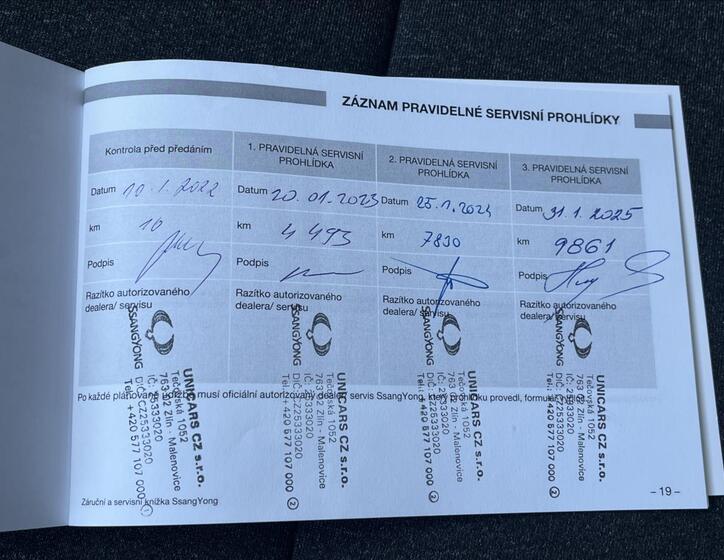 ZÁZNAM PRAVIDELNÉ SERVISNÍ PROHLÍDKY
Kontrola před předáním
Datum 10.1.2022
km 10
Podpis
Razítko autorizovaného
dealera/ servisu
1. PRAVIDELNÁ SERVISNÍ
PROHLÍDKA
Datum 20.01.2023
km 4 493
Podpis
Razítko autorizovaného
dealera/ servisu
2. PRAVIDELNÁ SERVISNÍ
PROHLÍDKA
Datum 25.1.2024
km 7830
Podpis
Razítko autorizovaného
dealera/ servisu
3. PRAVIDELNÁ SERVISNÍ
PROHLÍDKA
Datum 31.1.2025
km 9861
Podpis
Razítko autorizovaného
dealera/ servisu
SSANGYONG
UNICARS CZ s.r.o.
Tečovská 1052
763 02 Zlín - Malenovice
IČ: 25333020
DIČ: CZ25333020
Tel.: + 420 577 107 000 1
SSANGYONG
UNICARS CZ s.r.o.
Tečovská 1052
763 02 Zlín - Malenovice
IČ: 25333020
DIČ: CZ25333020
Tel.: + 420 577 107 000 2
SSANGYONG
UNICARS CZ s.r.o.
Tečovská 1052
763 02 Zlín - Malenovice
IČ: 25333020
DIČ: CZ25333020
Tel.: + 420 577 107 000 2
SSANGYONG
UNICARS CZ s.r.o.
Tečovská 1052
763 02 Zlín - Malenovice
IČ: 25333020
DIČ: CZ25333020
Tel.: + 420 577 107 000 2
Po každé plánované musí oficiální autorizovaný dealer servis SsangYong, provedl,
Záruční a servisní knížka SsangYong
– 19 –